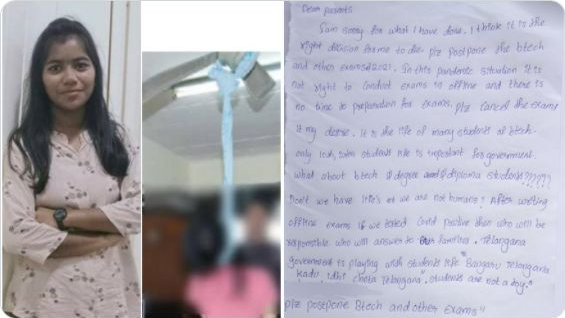 Dear parents
Iam sorry for what I have done. I think it is the
right decision for me to die. plz postpone the btech
and other exams@2021. In this pandemic situation it is
not right to conduct exams in offline and there is
no time to preparation for exams. plz cancel the exams
it my desire. It is the life of many students of btech.
only 10th, students life is important for government.
What about btech & degree & diploma students?????
Don't we have life's or we are not humans? After writing
offline exams if we tested Covid positive then who will be
responsible who will answer to families. Telangana
government is playing with students life "Bangaru Telangana
kadu, idhi chota Telangana". students are not a
plz postpone Btech and other exams"